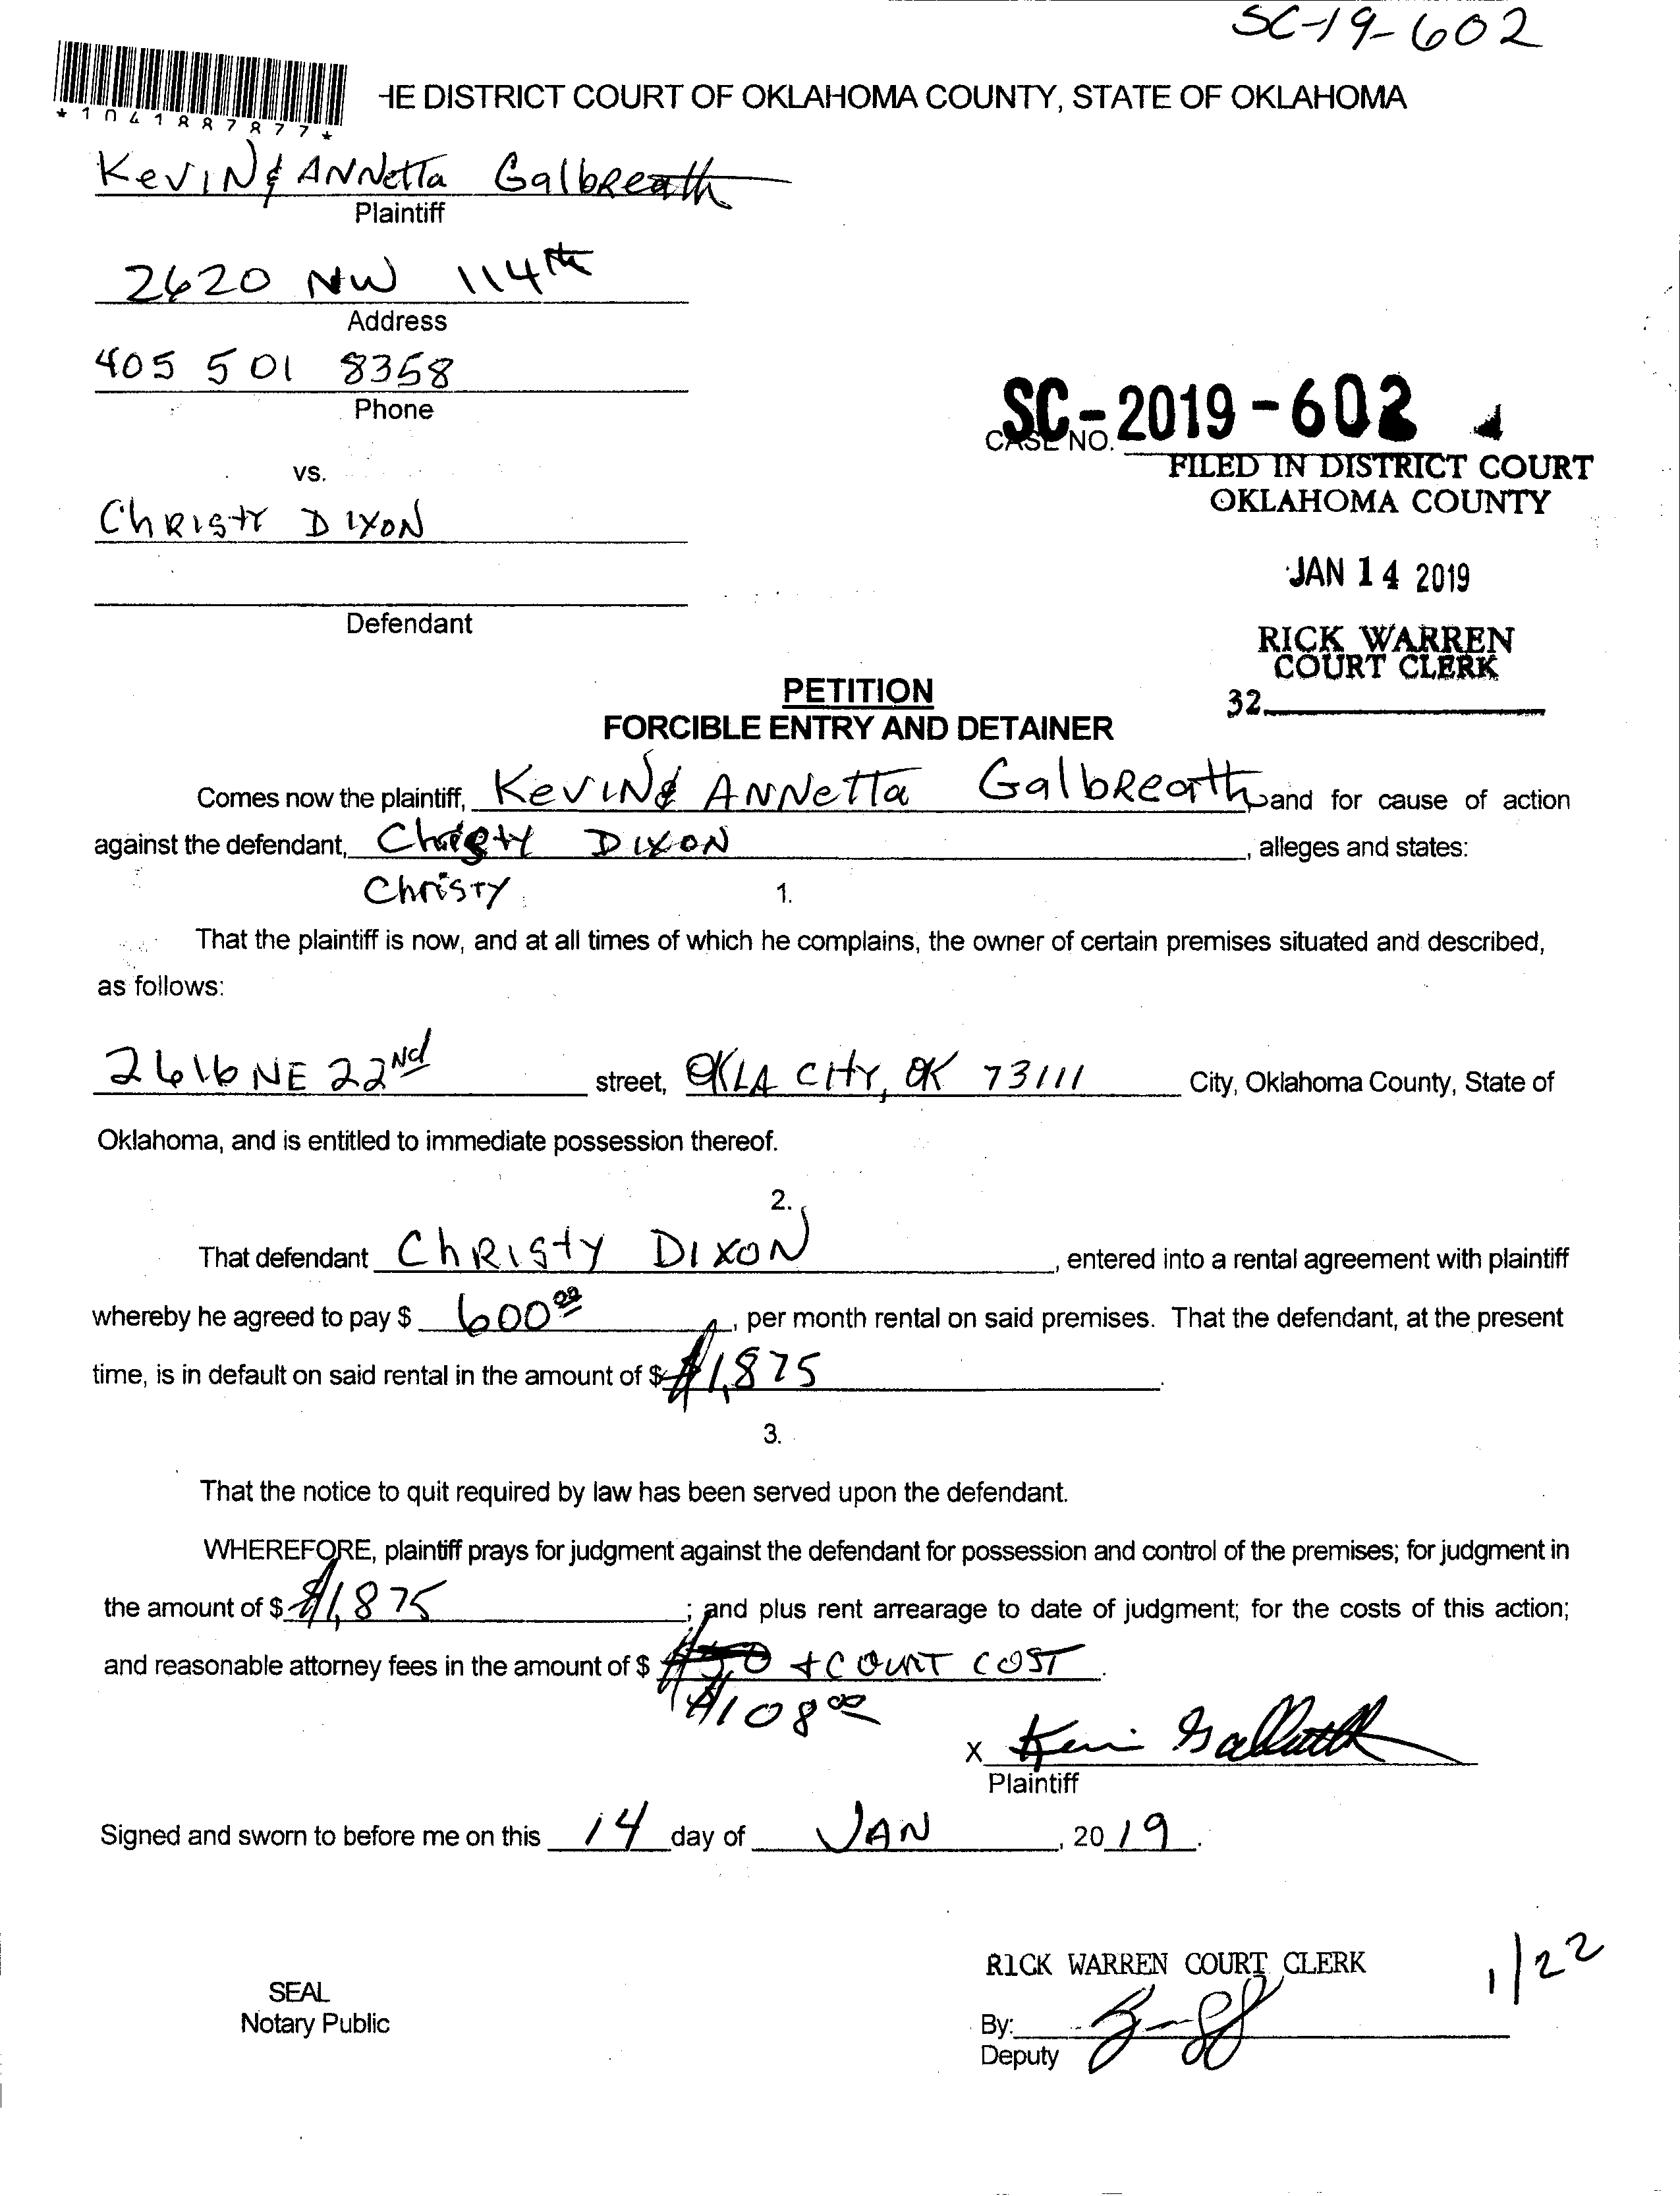 SC-19-602
*1041887877*
HE DISTRICT COURT OF OKLAHOMA COUNTY, STATE OF OKLAHOMA
KeVIN & ANNetta Galbreath
Plaintiff
2620 NW 114th
Address
405 501 8358
Phone
SC-2019-602
CASE NO.
FILED IN DISTRICT COURT
OKLAHOMA COUNTY
vs.
Christy Dixon
JAN 14 2019
Defendant
RICK WARREN
COURT CLERK
32
PETITION
FORCIBLE ENTRY AND DETAINER
Comes now the plaintiff, KeVIN & ANNetta Galbreath and for cause of action
against the defendant, Christy Dixon, alleges and states:
Christy
1.
That the plaintiff is now, and at all times of which he complains, the owner of certain premises situated and described,
as follows:
2616 NE 22nd street, OKLA City, OK 73111 City, Oklahoma County, State of
Oklahoma, and is entitled to immediate possession thereof.
2.
That defendant Christy Dixon, entered into a rental agreement with plaintiff
whereby he agreed to pay $ 600.00, per month rental on said premises. That the defendant, at the present
time, is in default on said rental in the amount of $ $1,875.
3.
That the notice to quit required by law has been served upon the defendant.
WHEREFORE, plaintiff prays for judgment against the defendant for possession and control of the premises; for judgment in
the amount of $ $1,875; and plus rent arrearage to date of judgment; for the costs of this action;
and reasonable attorney fees in the amount of $ + COURT COST.
$108.00
X Kevin Galbreath
Plaintiff
Signed and sworn to before me on this 14 day of JAN, 2019.
RICK WARREN COURT CLERK
1/22
SEAL
Notary Public
By:
Deputy